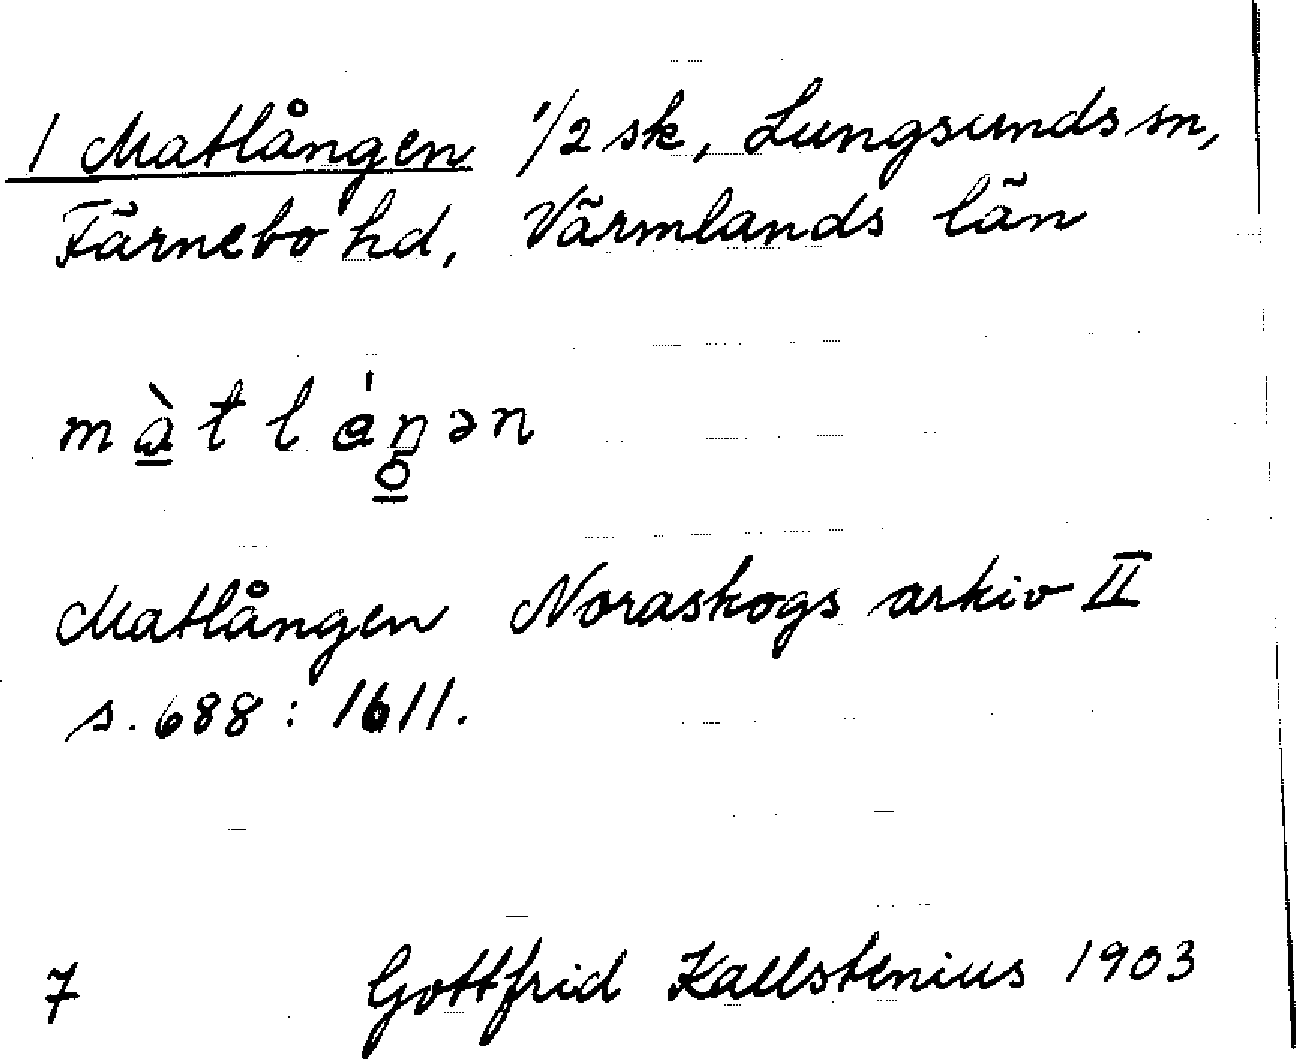 1 Matlången 1/2 sk, Lungsunds sn,
Färnebo hd, Värmlands län
màt láŋən
o
Matlången Noraskogs arkiv II
s. 688 : 1611.
7 Gottfrid Kallstenius 1903